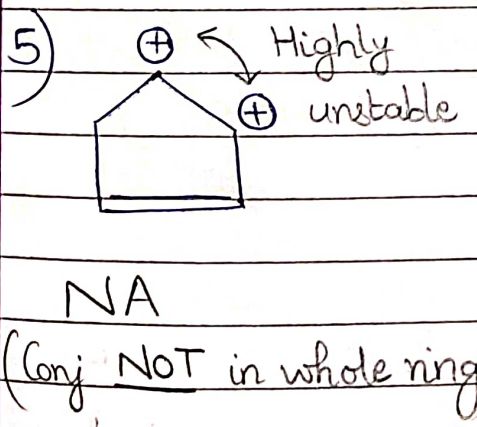 5) ⊕ Highly
⊕ unstable
NA
(Conj NOT in whole ring